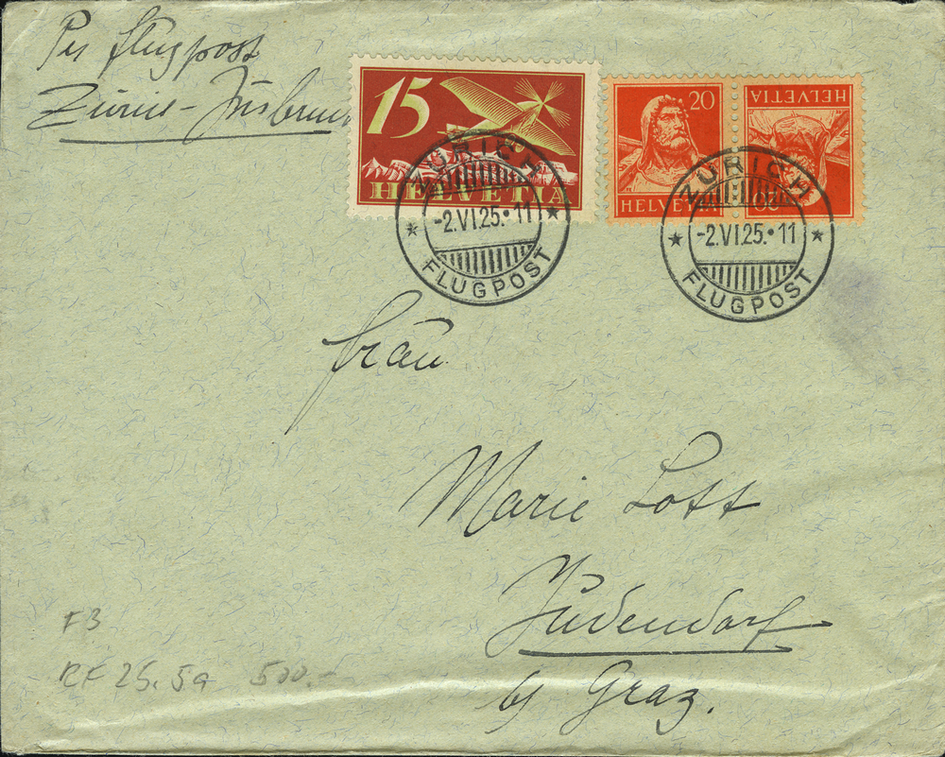 Per Flugpost
Zürich-Insbruck
15
HELVETIA
20
HELVETIA
HELVETIA
20
ZÜRICH
-2.VI.25.•11
FLUGPOST
ZÜRICH
-2.VI.25.•11
FLUGPOST
Frau
Marie Lott
Judendorf
bj Graz.
F3
RF 25.5a 500.-